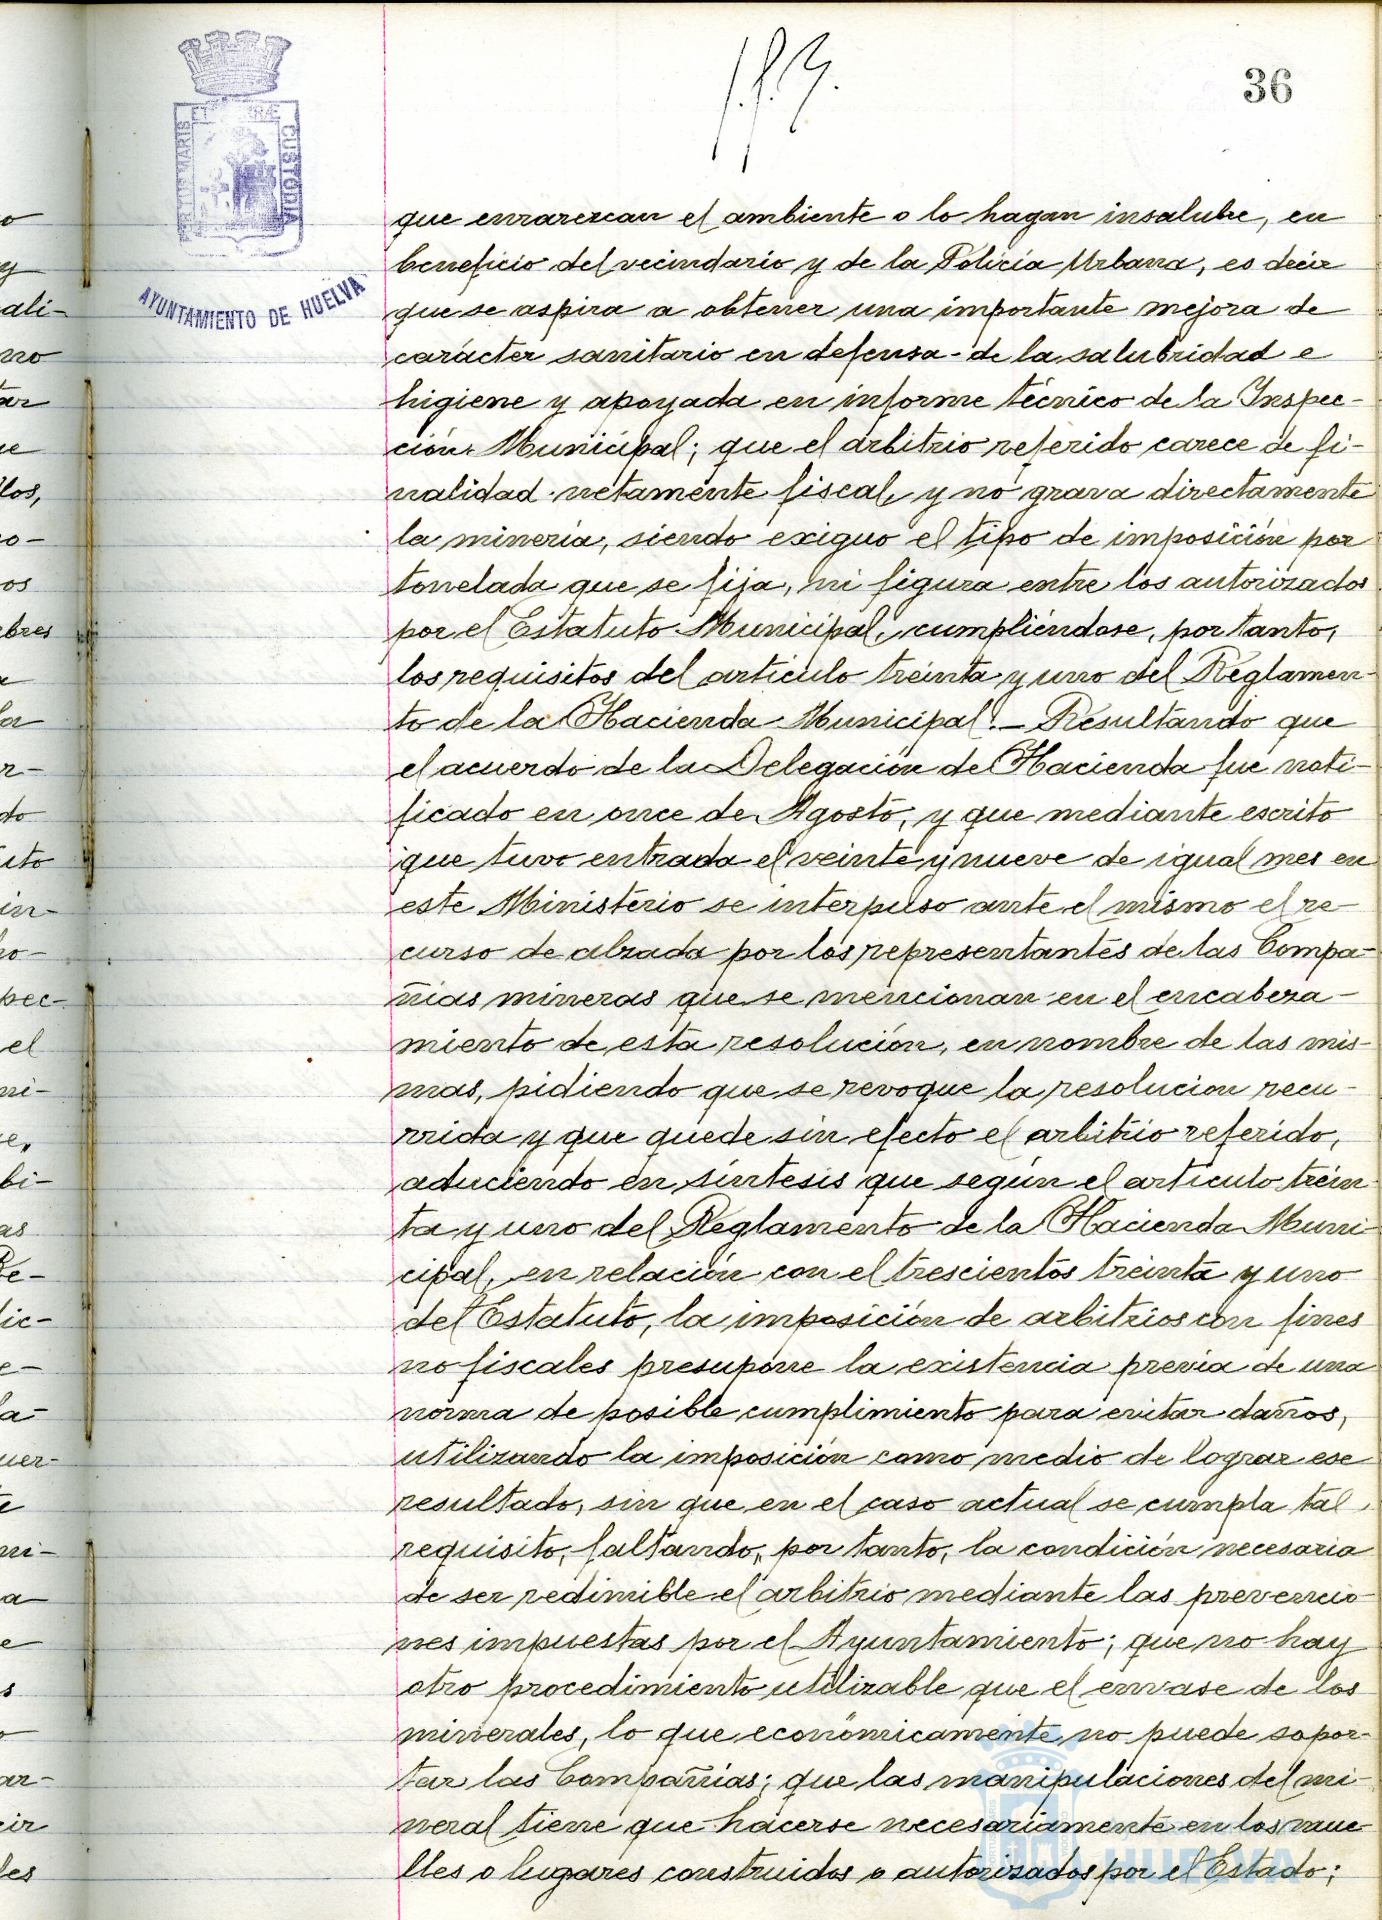 36
PORTUS MARIS ET TERRAE CUSTODIA
AYUNTAMIENTO DE HUELVA
que enrarezcan el ambiente o lo hagan insalubre, en
beneficio del vecindario y de la Policía Urbana, es decir
que se aspira a obtener una importante mejora de
carácter sanitario en defensa de la salubridad e
higiene y apoyada en informe técnico de la Inspec-
ción Municipal; que el arbitrio referido carece de fi-
nalidad netamente fiscal, y no grava directamente
la minería, siendo exiguo el tipo de imposición por
tonelada que se fija, ni figura entre los autorizados
por el Estatuto Municipal, cumpliéndose, por tanto,
los requisitos del artículo treinta y uno del Reglamen-
to de la Hacienda Municipal.- Resultando que
el acuerdo de la Delegación de Hacienda fué noti-
ficado en once de Agosto, y que mediante escrito
que tuvo entrada el veinte y nueve de igual mes en
este Ministerio se interpuso ante el mismo el re-
curso de alzada por los representantes de las Compa-
ñias mineras que se mencionan en el encabeza-
miento de esta resolución, en nombre de las mis-
mas, pidiendo que se revoque la resolucion recu-
rrida y que quede sin efecto el arbitrio referido,
aduciendo en síntesis que según el artículo trein-
ta y uno del Reglamento de la Hacienda Muni-
cipal, en relación con el trescientos treinta y uno
del Estatuto, la imposición de arbitrios con fines
no fiscales presupone la existencia previa de una
norma de posible cumplimiento para evitar daños,
utilizando la imposición como medio de lograr ese
resultado, sin que en el caso actual se cumpla tal
requisito, faltando, por tanto, la condición necesaria
de ser redimible el arbitrio mediante las prevencio-
nes impuestas por el Ayuntamiento; que no hay
otro procedimiento utilizable que el envase de los
minerales, lo que económicamente no puede sopor-
tar las Compañías; que las manipulaciones del mi-
neral tiene que hacerse necesariamente en los mue-
lles o lugares construidos o autorizados por el Estado;
HUELVA